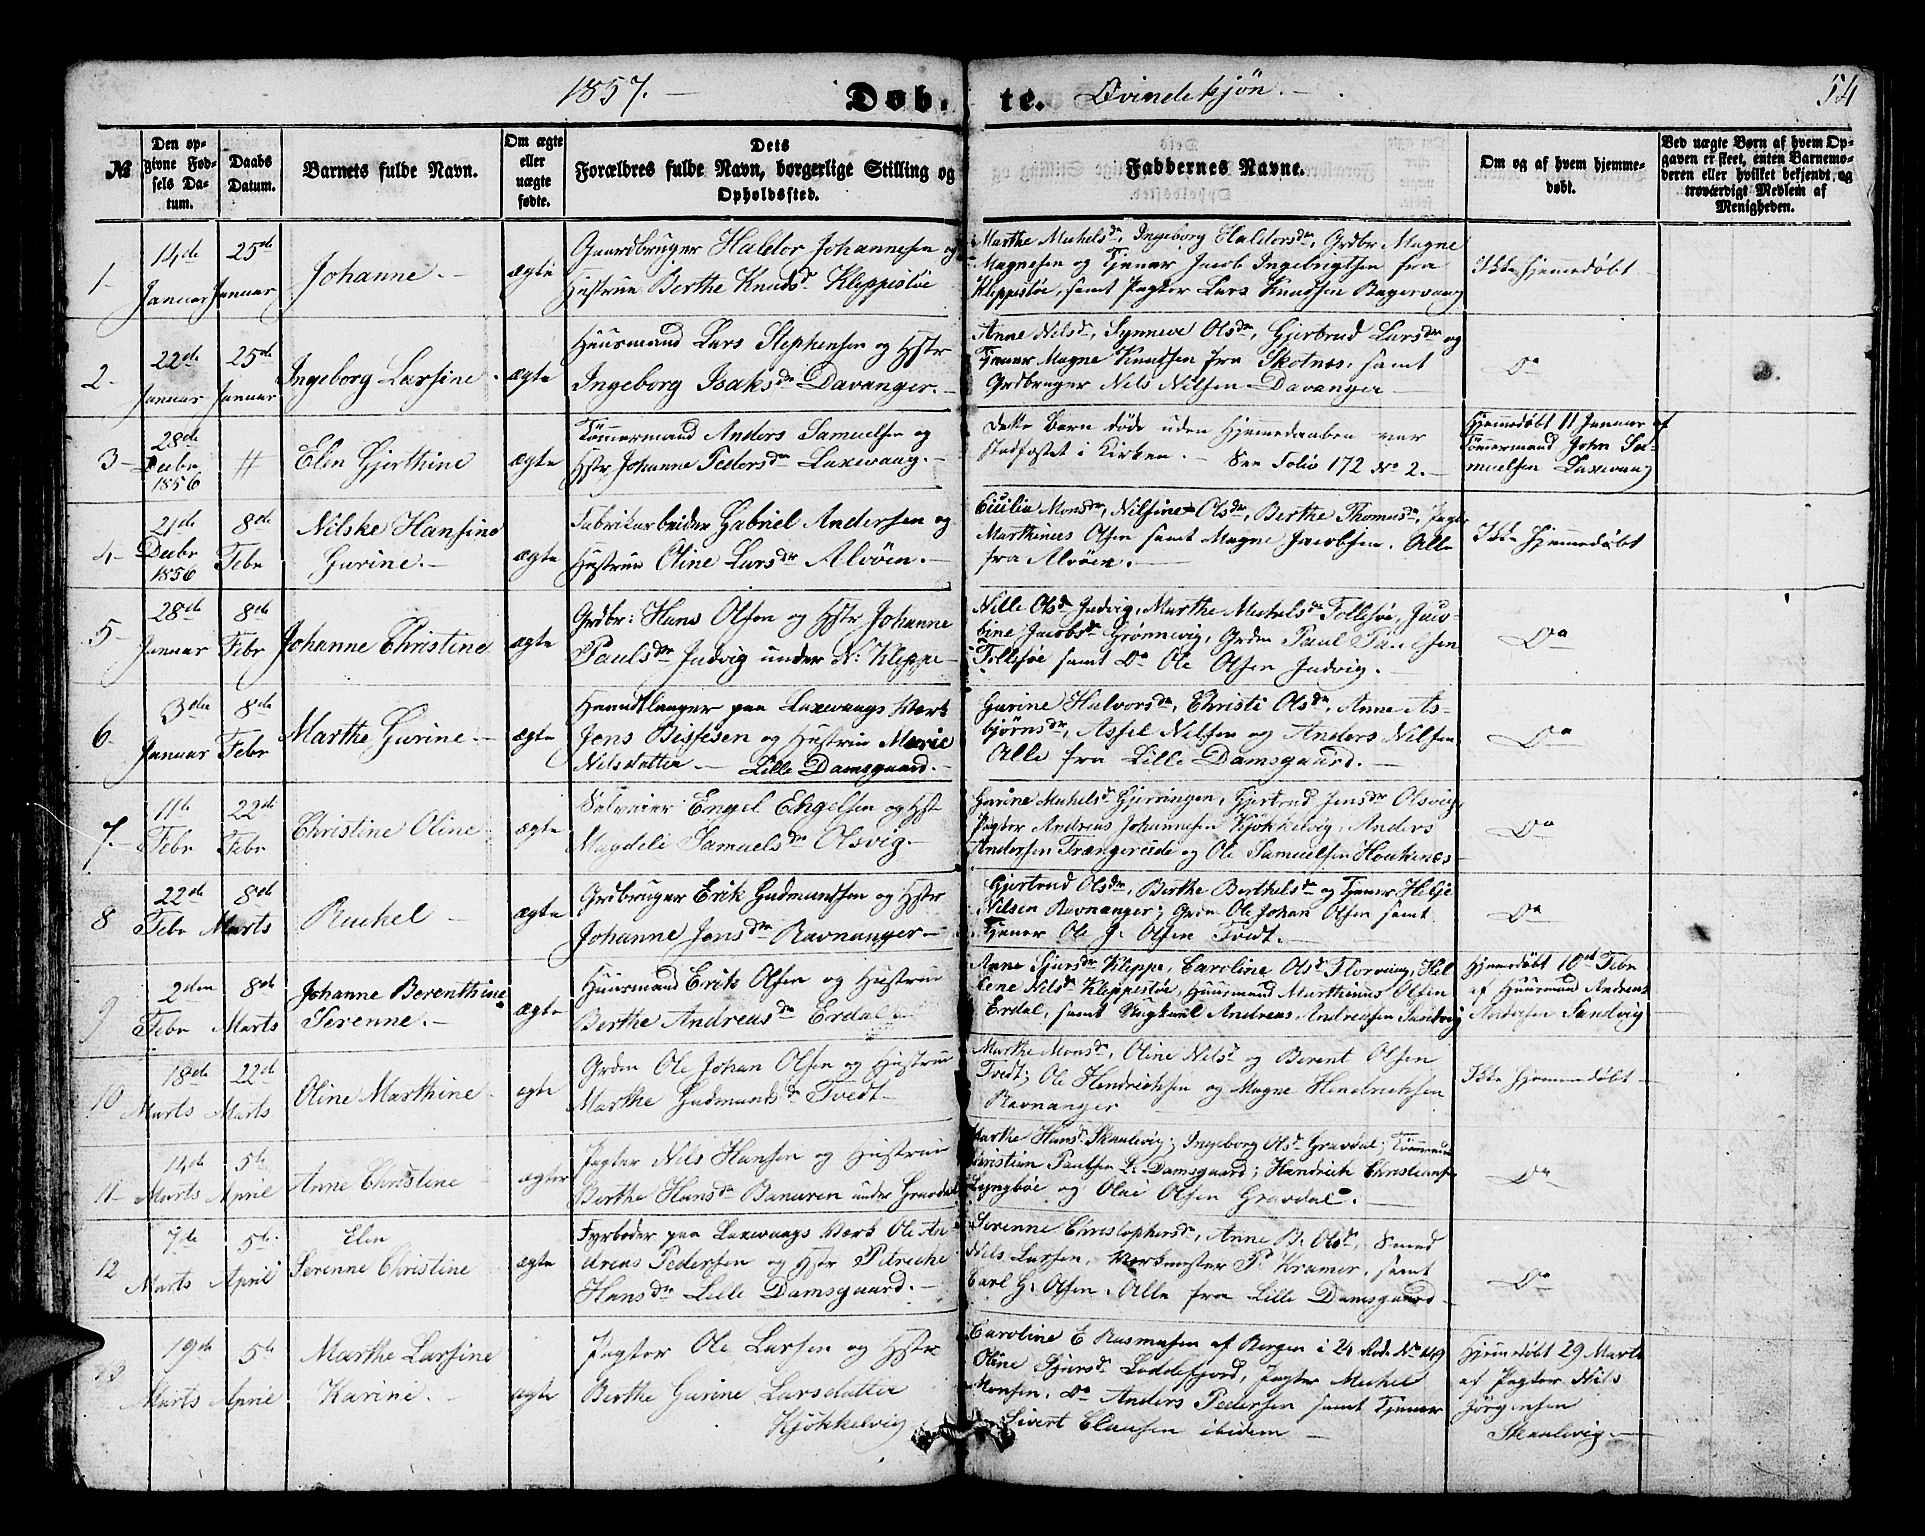 1857.
Døb-
te.
Qvindekjön.
54
№
Den op-
givne Fød-
sels Da-
tum.
Daabs
Datum.
Barnets fulde Navn.
Om ægte
eller
uægte
fødte.
Dets
Forældres fulde Navn, borgerlige Stilling og
Opholdssted.
Faddernes Navne.
Om og af hvem hjemme-
døbt.
Ved uægte Børn af hvem Op-
gaven er skeet, enten Barnemo-
deren eller hvilket bekjendt, og
troværdigt Medlem af
Menigheden.
1-
14de
Januar
25de
Januar
Johanne.-
ægte
Gaardbruger Haldor Johannesen og
Hustrue Berthe Knudsdr Kleppestöe
Marthe Mickelsdr, Ingeborg Haldorsdr, Grdbr Magne
Magnesen og Tjener Jacob Ingebrigtsen fra
Kleppestöe, samt Pagter Lars Knudsen
Ikke Hjemmedöbt
2-
22de
Januar
25de
Januar
Ingeborg Larsine.
ægte
Huusmand Lars Stephensen og Hstr
Ingeborg Isaksdr Davanger.-
Anne Nilsdr, Synneve Olsdr, Gjertrud Larsdr og
Tjener Magne Knudsen fra Skotnes, samt
Grdbruger Nils Nilsen Davanger
Do
3-
28de
Decbr
1856
#
Elen Gjerthine
ægte
Tömmermand Anders Samuelsen og
Hstr Johanne Pedersdr Laxevaag.-
Dette Barn döde uden Hjemmedaaben var
stadfæstet i Kirken.- See Folio 172 No 2.-
Hjemmedöbt 11 Januar af
Tömmermand John Sa-
muelsen Laxevaag
4-
21de
Decbr
1856
8de
Febr
Nilske Hansine
Gurine.-
ægte
Fabrikarbeider Gabriel Andersen og
Hustrue Oline Larsdr Alvöen.-
Cicilia Monsdr, Nilsine Olsdr, Berthe Thomasdr, Pagter
Marthinus Olsen samt Magne Jacobsen. Alle
fra Alvöen.-
Ikke Hjemmedöbt
5-
28de
Januar
8de
Febr
Johanne Christine
ægte
Grdbr: Hans Olsen og Hstr Johanne
Paulsdr Indvig under N: Kleppe
Nille Olsdr Indvig, Marthe Mickelsdr Follesöe, Jaco-
bine Jacobsdr Grönnevig, Grdm Paul Paulsen
Follesöe samt Do Ole Olsen Indvig.-
Do
6-
3die
Januar
8de
Febr
Marthe Gurine.-
ægte
Haandlanger paa Laxevaags Værk
Jens Bessesen og Hustrue Marie
Nilsdatter.- Lille Damsgaard.-
Gurine Halvorsdr, Christi Olsdr, Anne As-
björnsdr, Assel Nilsen og Anders Nilsen
Alle fra Lille Damsgaard.-
Do
7.-
11te
Febr
22de
Febr
Christine Oline
ægte
Selveier Engel Engelsen og Hstr
Magdeli Samuelsdr Olsvig.-
Gurine Mickelsdr Gjerringen, Gjertrud Jensdr Olsvig,
Pagter Andreas Johannesen Kjökkelvig, Anders
Andersen Frangereide og Ole Samuelsen Haakenæs-
Do
8
22de
Febr
8de
Marts
Rachel -
ægte
Grdbruger Erik Gudmundsen og Hstr
Johanne Jensdr Ravnanger.-
Gjertrud Olsdr, Berthe Berthelsdr og Tjener Helje
Nilsen Ravnanger; Grdm Ole Johan Olsen samt
Tjener Ole J. Olsen Tvedt.-
Do
9
2den
Febr
8de
Marts
Johanne Berenthine
Serenne.-
ægte
Huusmand Erik Olsen og Hustrue
Berthe Andreasdr Erdal.-
Anne Sjursdr Kleppe, Caroline Olsdr Florvaag, Hel-
lene Nilsdr Kleppestöe, Huusmand Marthinus Olsen
Erdal, samt Ungkarl Andreas Andreasen Sandvig
Hjemmedöbt 10de Febr
af Huusmand Andreas
Andersen Sandvig
10
18de
Marts
22de
Marts
Oline Marthine
ægte
Grdm Ole Johan Olsen og Hustrue
Marthe Gudmundsdr Tvedt.-
Marthe Monsdr, Oline Nilsdr og Berent Olsen
Tvedt; Ole Hendricksen og Magne Hendricksen
Ravnanger
Ikke Hjemmedöbt
11-
14de
Marts
5te
April
Anne Christine
ægte
Pagter Nils Hansen og Hustrue
Berthe Hansdr Banuren under Gravdal
Marthe Hansdr Skaalevig; Ingeborg Olsdr Gravdal; Tömmermd
Christian Paulsen L. Damsgaard; Hendrich Christiansen
Lyngböe og Olai Olsen Gravdal.
Do
12
7de
Marts
5te
April
Elen
Serenne Christine
ægte
Fyrböder paa Laxevaags Værk Ole An-
dreas Pedersen og Hstr Petriche
Hansdr Lille Damsgaard.-
Serenne Christophersdr, Anne B. Olsdr, Smed
Nils Larsen, Værkmester P. Kramer, samt
Carl G. Olsen. Alle fra Lille Damsgaard
Do
13
19de
Marts
5te
April
Marthe Larsine
Karine.-
ægte
Pagter Ole Larsen og Hstr
Berthe Gurine Larsdatter
Kjökkelvig
Caroline E Rasmusen af Bergen i 24 Rode No 149
Oline Sjursdr Loddefjord, Pagter Mickel
Monsen, Do Anders Pedersen samt Tjener
Sivert Clausen ibidem -
Hjemmedöbt 29 Marts
af Pagter Nils
Jörgensen
Skaalevig.-